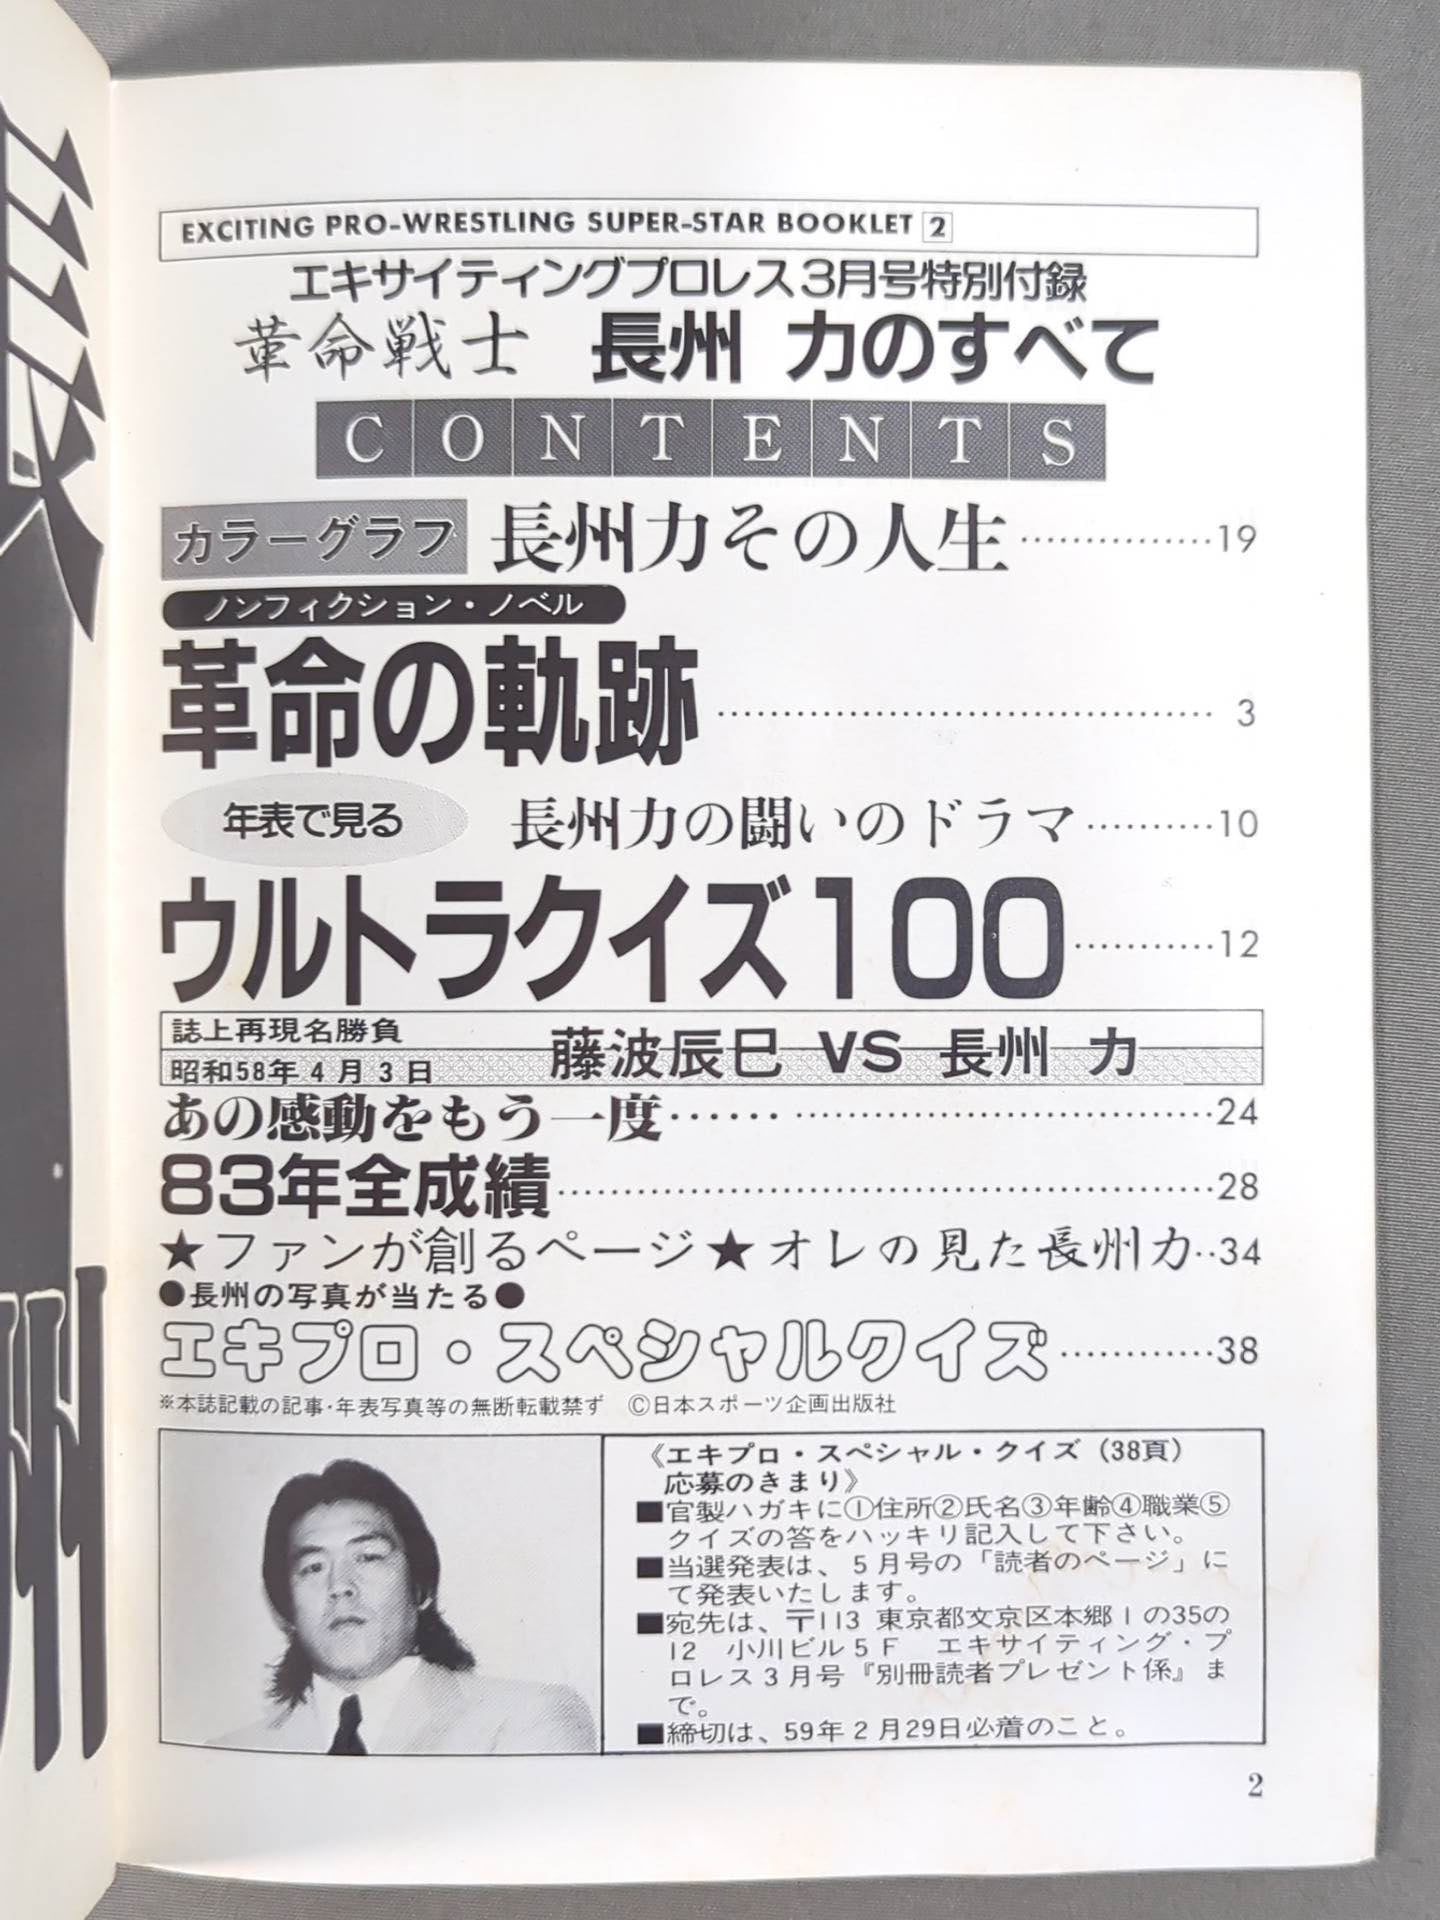 EXCITING PRO-WRESTLING SUPER-STAR BOOKLET 2
エキサイティングプロレス3月号特別付録
革命戦士 長州 力のすべて
CONTENTS
カラーグラフ 長州力その人生……………19
ノンフィクション・ノベル
革命の軌跡……………3
年表で見る 長州力の闘いのドラマ……………10
ウルトラクイズ100……………12
誌上再現名勝負
昭和58年4月3日 藤波辰巳 VS 長州 力
あの感動をもう一度……………24
83年全成績……………28
★ファンが創るページ★オレの見た長州力‥34
●長州の写真が当たる●
エキプロ・スペシャルクイズ……………38
※本誌記載の記事・年表写真等の無断転載禁ず Ⓒ日本スポーツ企画出版社
《エキプロ・スペシャル・クイズ(38頁)
応募のきまり》
■官製ハガキに①住所②氏名③年齢④職業⑤
クイズの答をハッキリ記入して下さい。
■当選発表は、5月号の「読者のページ」に
て発表いたします。
■宛先は、〒113 東京都文京区本郷1の35の
12 小川ビル5F エキサイティング・プ
ロレス3月号『別冊読者プレゼント係』ま
で。
■締切は、59年2月29日必着のこと。
2